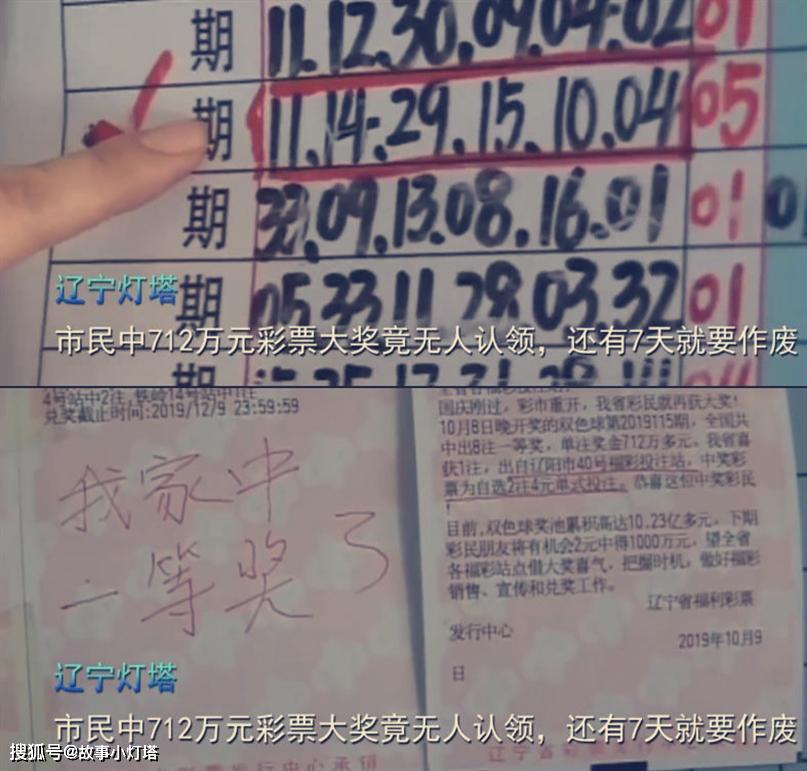 期 11.12.30.09.04.02 01
期 11.14.29.15.10.04 05
期 33.09.13.08.16.01 01
辽宁灯塔
期 05.33.11.28.03.32 01
市民中712万元彩票大奖竟无人认领，还有7天就要作废
期
4号站中2注，铁岭14号站中1注
兑奖截止时间:2019/12/9 23:59:59
我家中
一等奖了
国庆刚过，彩市重开，我省彩民就再获大奖！
10月8日晚开奖的双色球第2019115期，全国共
中出8注一等奖，单注奖金712万多元。我省喜
获1注，出自辽阳市40号福彩投注站，中奖彩
票为自选2注4元单式投注。恭喜这位中奖彩民
！
目前，双色球奖池累积高达10.23亿多元，下期
彩民朋友将有机会2元中得1000万元，望全省
各福彩站点借大奖喜气，把握时机，做好福彩
销售、宣传和兑奖工作。
辽宁省福利彩票
发行中心
2019年10月9
日
辽宁灯塔
市民中712万元彩票大奖竟无人认领，还有7天就要作废
搜狐号@故事小灯塔